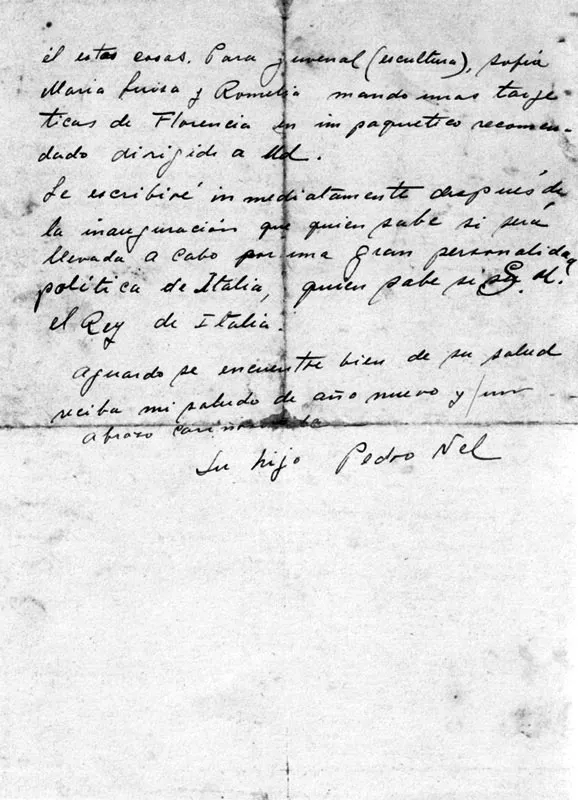 él estas cosas. Para Juvenal (escultura), Sofía
María Luisa y Romelia mando unas targe
ticas de Florencia en un paquetico recomen-
dado dirigido a Ud.
Le escribiré inmediatamente después de
la inauguración que quien sabe si será
llevada a cabo por una gran personalidad
política de Italia, quien sabe si S. M.
el Rey de Italia.
Aguardo se encuentre bien de su salud
reciba mi saludo de año nuevo y un
abrazo
Su hijo Pedro Nel